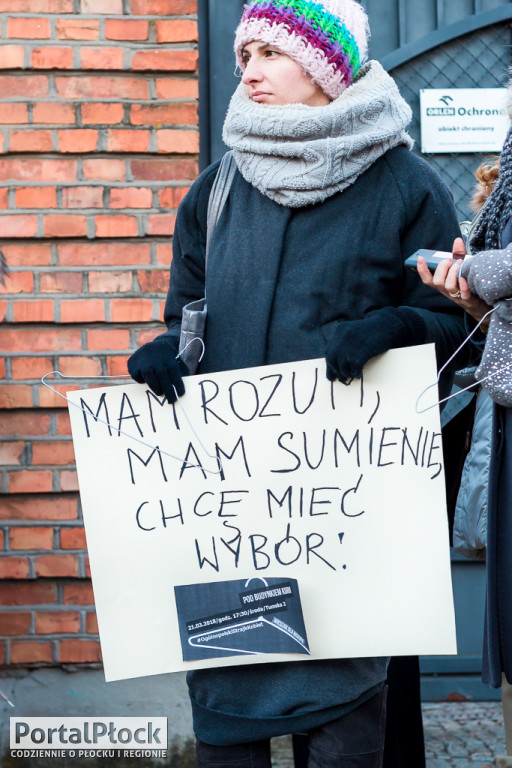 ORLEN Ochrona
obiekt chroniony
MAM ROZUM,
MAM SUMIENIE,
CHCĘ MIEĆ
WYBÓR!
POD BUDYNKIEM KURII
21.03.2018/godz. 17:30/środa/Tumska 3
#OgólnopolskiStrajkKobiet
PortalPłock
CODZIENNIE O PŁOCKU I REGIONIE